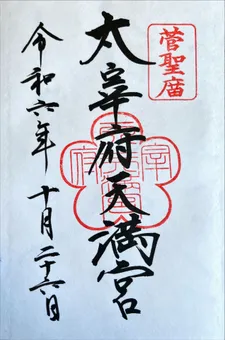 菅聖廟
太宰府天満宮
令和六年十月二十六日